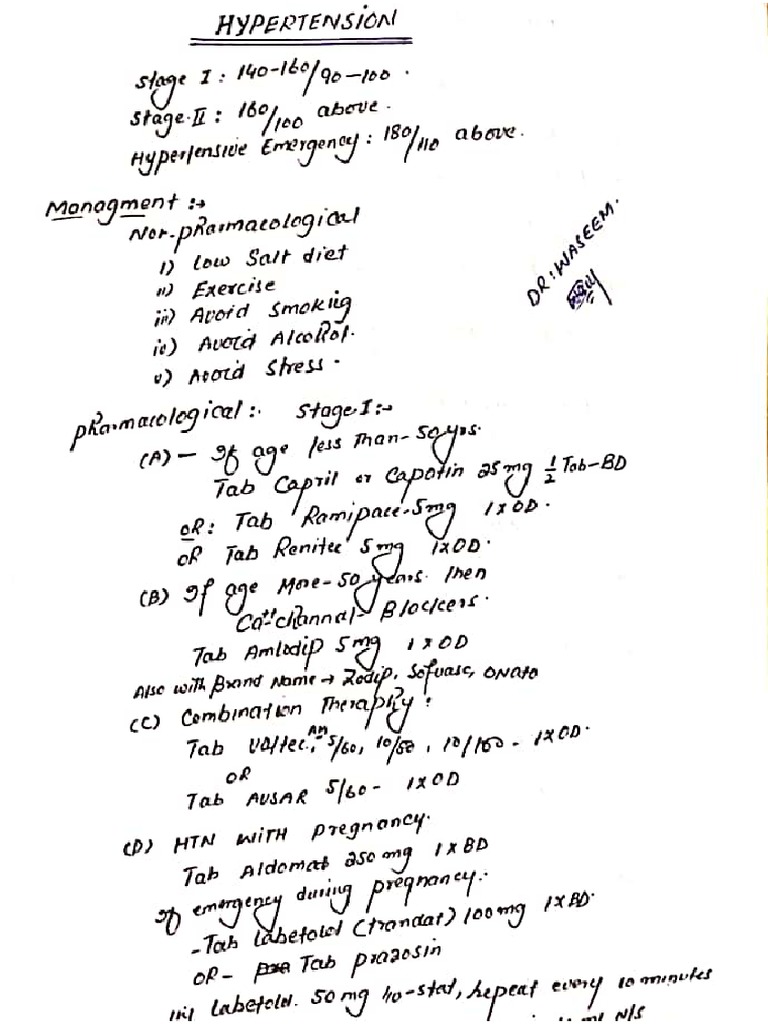 HYPERTENSION
Stage I : 140-160/90-100 .
Stage-II : 160/100 above .
Hypertensive Emergency : 180/110 above .
Managment :→
Non-pharmacological
i) Low Salt diet
ii) Exercise
iii) Avoid Smoking
iv) Avoid Alcohol.
v) Avoid Stress .
DR: WASEEM.
Pharmacological :. Stage I :→
(A) — If age less than - 50 yrs.
Tab Capril or Capotin 25 mg 1/2 Tab-BD
OR : Tab Ramipace 5mg 1 x OD .
OR Tab Renitec 5 mg 1xOD .
(B) If age More - 50 years. then
Ca++ channal - Blockers .
Tab Amlodip 5 mg 1 x OD
Also with Brand Name → Zodip, Sofvasc, ONato
(C) Combination Therapiy :
Tab Am 5/80, 10/80 , 10/160 - 1xOD .
OR
Tab AVSAR 5/80 - 1xOD
(D) HTN WITH pregnancy.
Tab Aldomat 250 mg 1 x BD
If emergency during pregnancy :.
- Tab labetolol (trandat) 100 mg 1x BD .
OR - Tab prazosin
Inj labetolol. 50 mg stat, repeat every 10 minutes
N/S